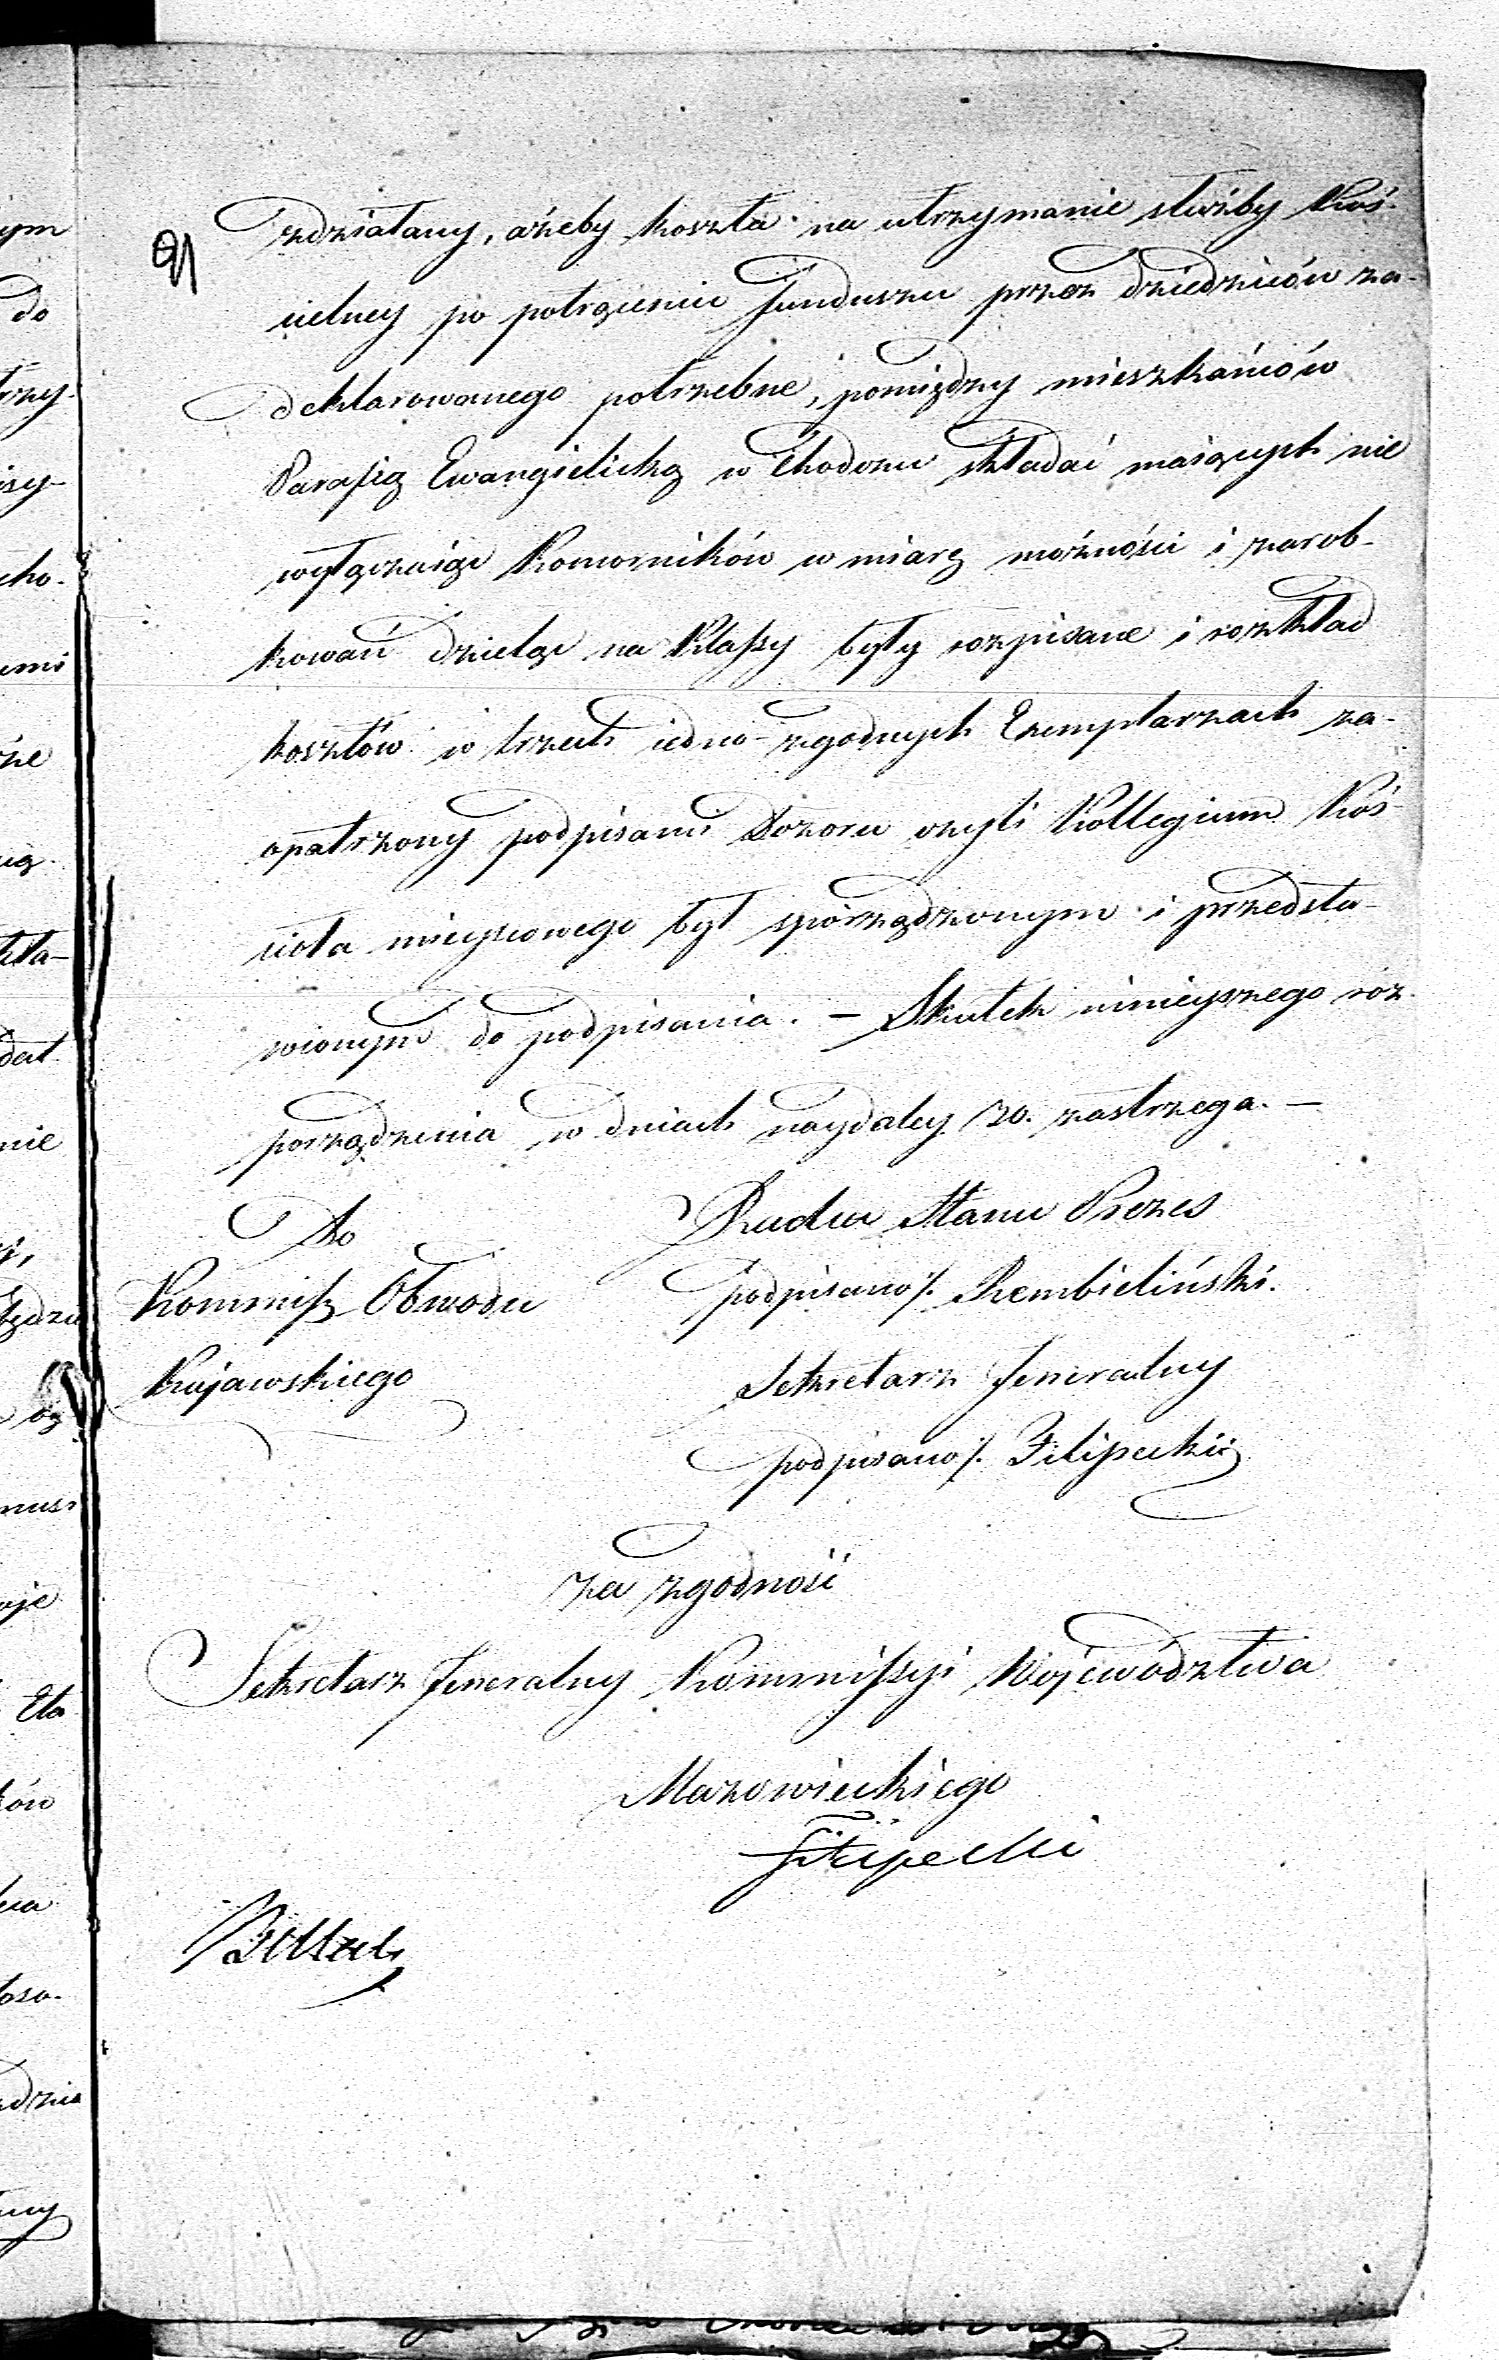 91
zdziałany, ażeby koszta na utrzymanie służby Koś-
cielney po potrąceniu funduszu przez dziedziców za-
deklarowanego potrzebne, pomiędzy mieszkańców
Parafią Ewangielicką w Chodczu składać maiących nie
wyłączaiąc Komorników w miarę możności i zarob-
kowań dzieląc na Klassy były rozpisane i rozkład
kosztów w trzech iedno-zgodnych Exemplarzach za-
opatrzony podpisami Dozoru czyli Kollegium Koś-
cioła mieyscowego był sporządzonym i przedsta-
wionym do podpisania. – Skutek ninieyszego roz-
porządzenia w dniach naydaley 20. zastrzega. –
Radca Stanu Prezes
podpisano/. Rembieliński.
Sekretarz Jeneralny
podpisano/. Filipecki
Do
Kommissa Obwodu
Kujawskiego
Za zgodność
Sekretarz Jeneralny Kommissyi Województwa
Mazowieckiego
Filipecki